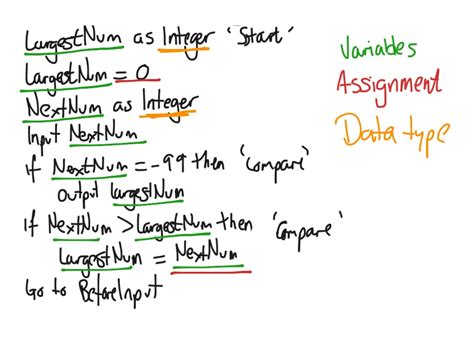 LargestNum as Integer 'Start'
LargestNum = 0
NextNum as Integer
Input NextNum
if NextNum = -99 then 'Compare'
output largestNum
If NextNum > LargestNum then 'Compare'
LargestNum = NextNum
Go to BeforeInput
Variables
Assignment
Data type